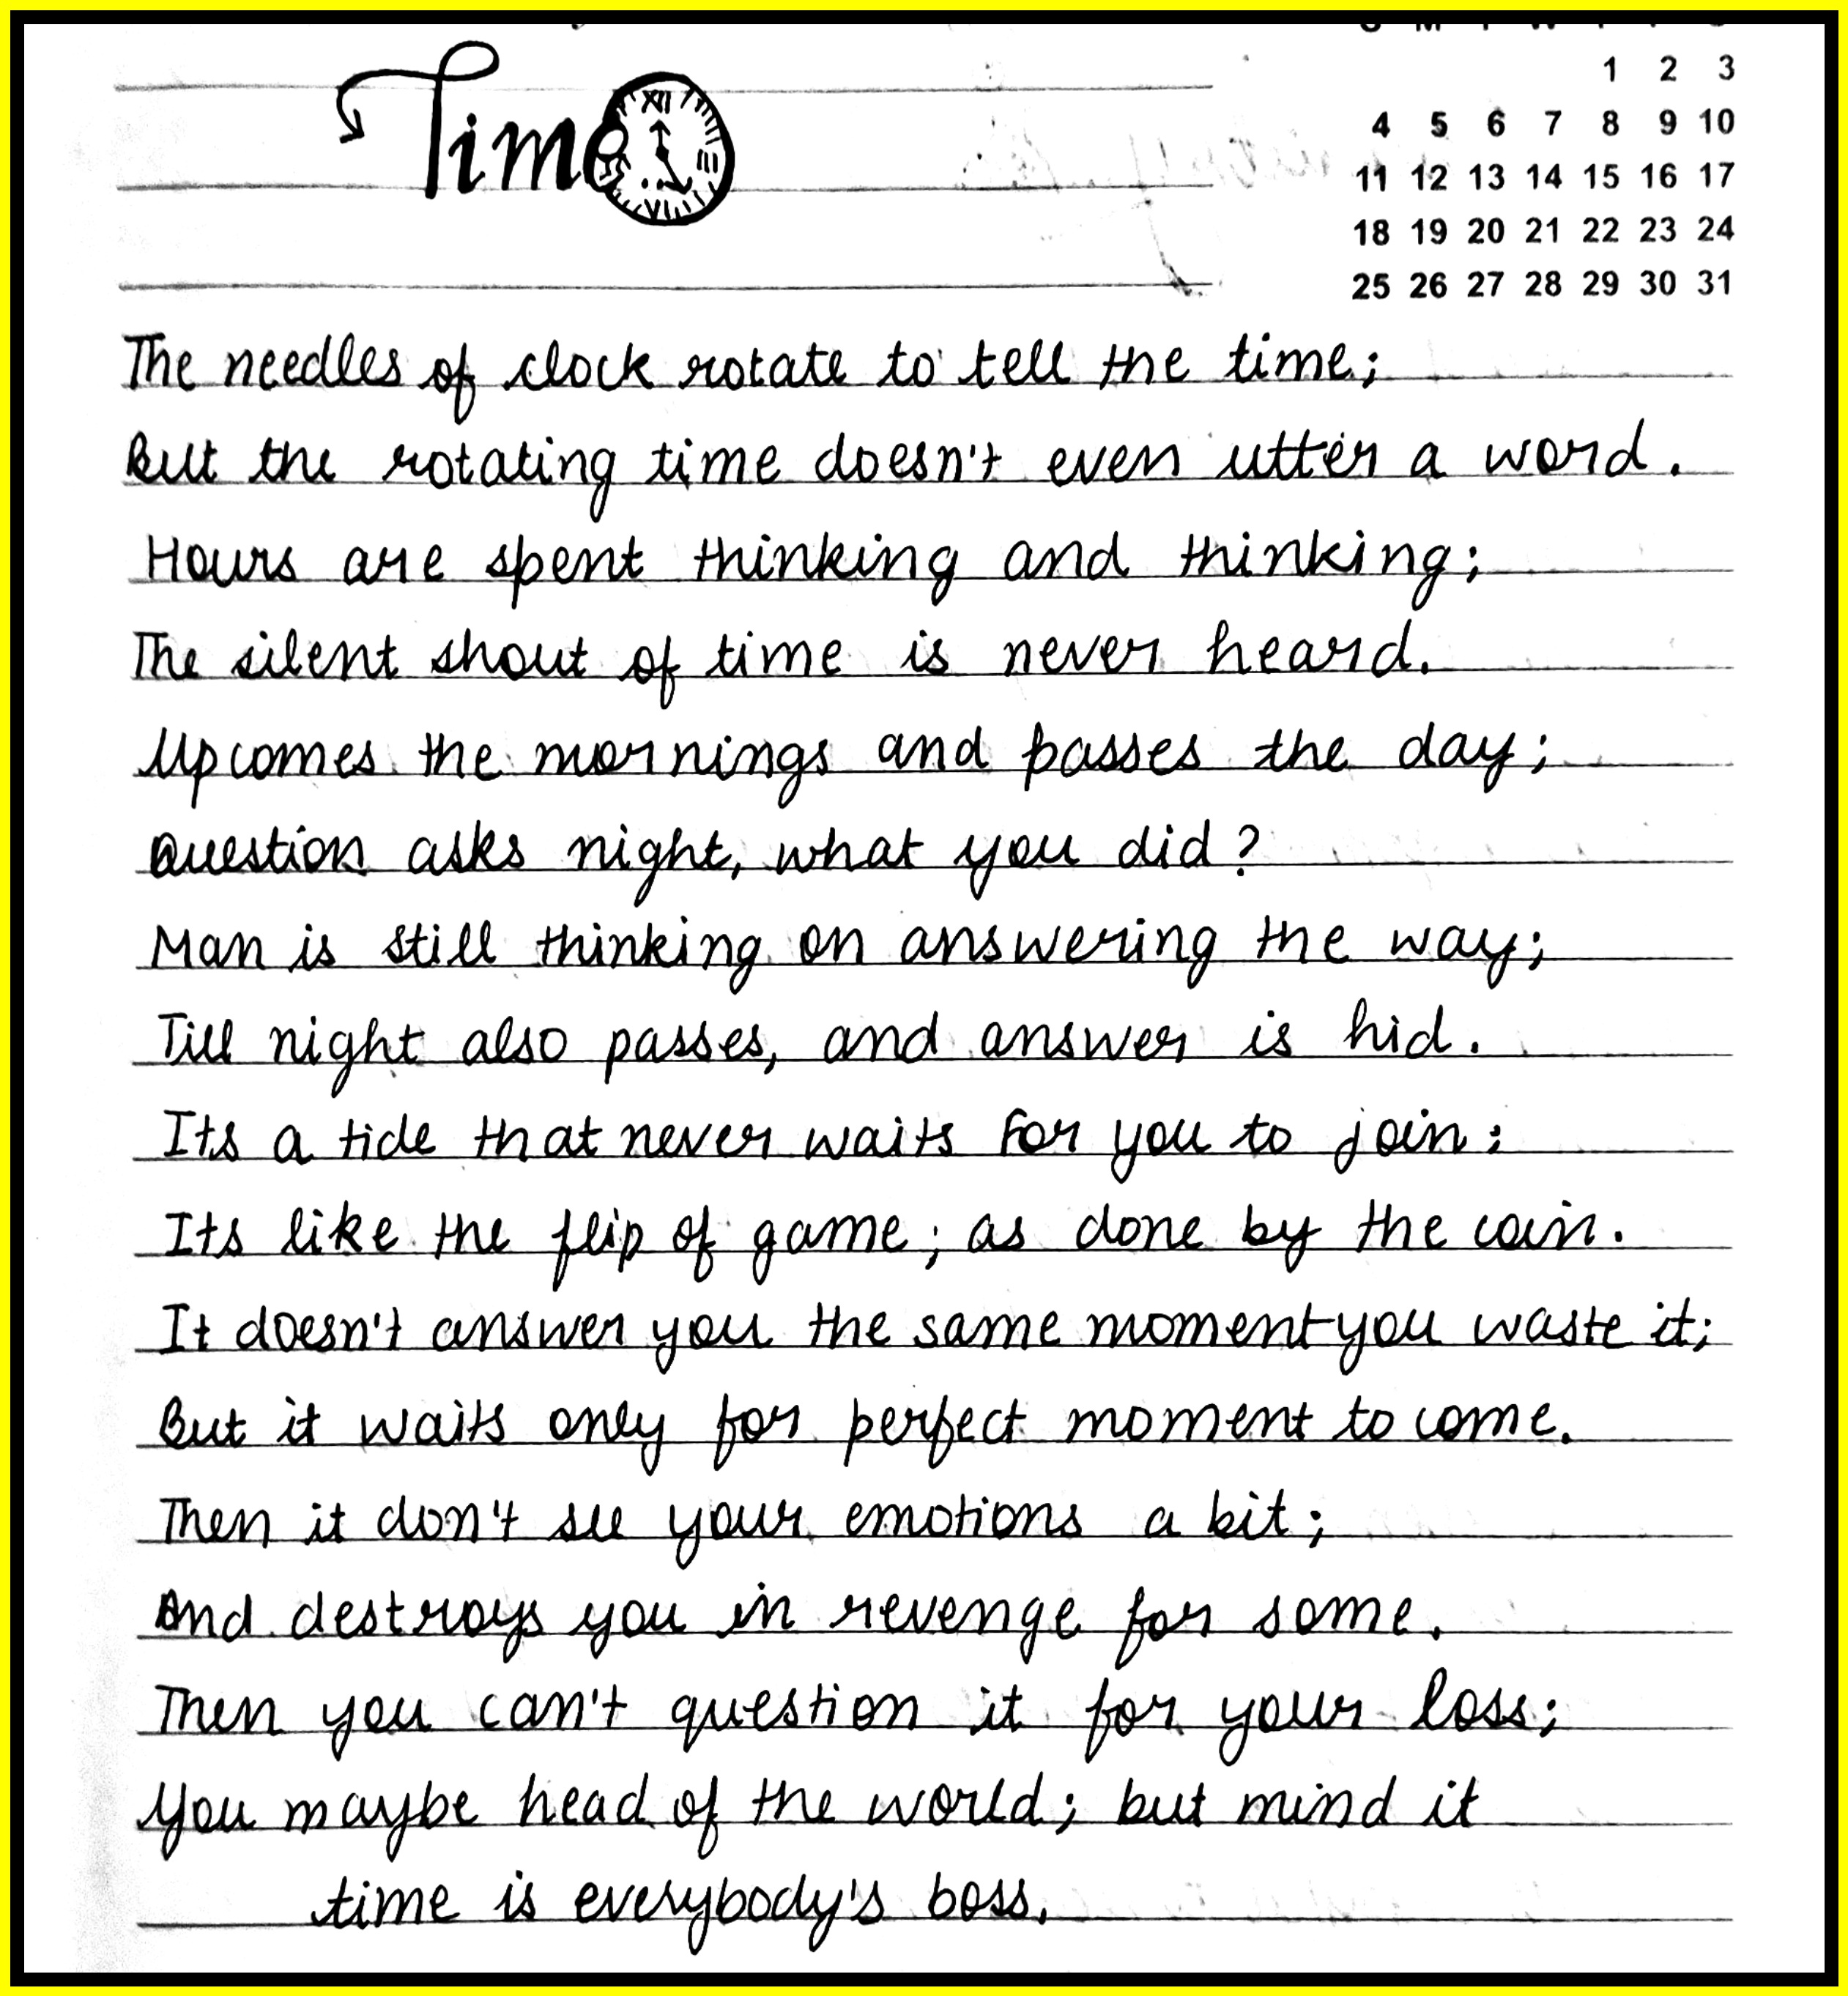 Time
S M T W T F S
1 2 3
4 5 6 7 8 9 10
11 12 13 14 15 16 17
18 19 20 21 22 23 24
25 26 27 28 29 30 31
XII
III
VI
The needles of clock rotate to tell the time;
But the rotating time doesn't even utter a word.
Hours are spent thinking and thinking;
The silent shout of time is never heard.
Up comes the mornings and passes the day;
Question asks night, what you did?
Man is still thinking on answering the way;
Till night also passes, and answer is hid.
Its a tide that never waits for you to join;
Its like the flip of game; as done by the coin.
It doesn't answer you the same moment you waste it;
But it waits only for perfect moment to come.
Then it don't see your emotions a bit;
And destroys you in revenge for some.
Then you can't question it for your loss;
You maybe head of the world; but mind it
time is everybody's boss.